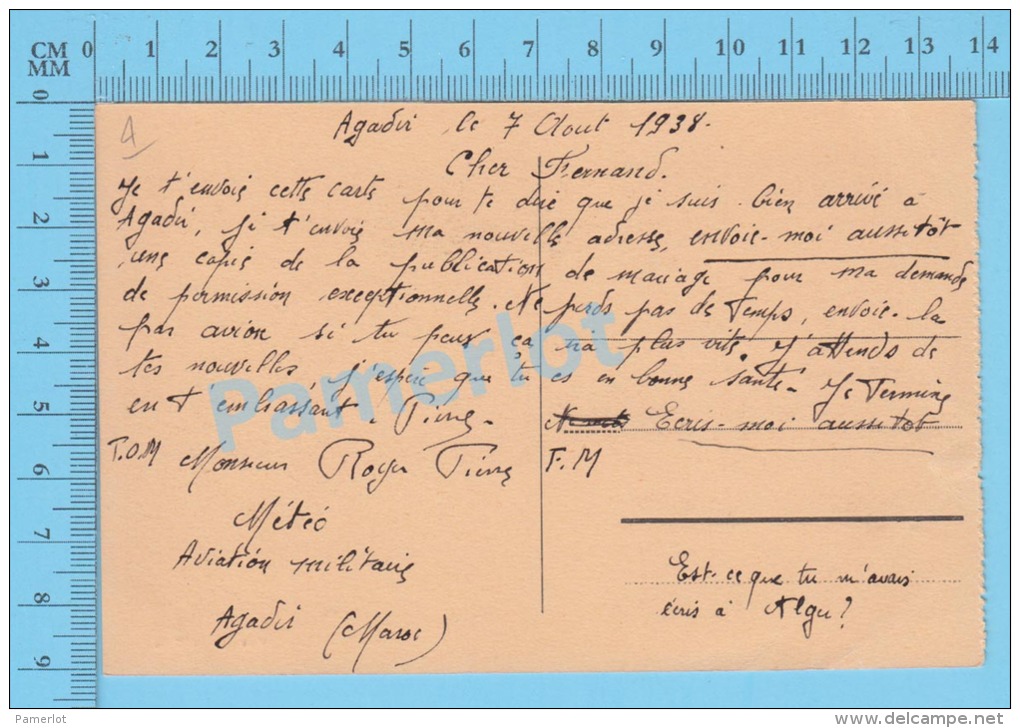 CM 0 1 2 3 4 5 6 7 8 9 10 11 12 13 14
MM
0 1 2 3 4 5 6 7 8 9
4
Agadir, le 7 Aout 1938.
Cher Fernand.
Je t'envois cette carte pour te dire que je suis bien arrivé à
Agadir, je t'envois ma nouvelle adresse, envoie-moi aussitôt
une copie de la publication de mariage pour ma demande
de permission exceptionnelle. Ne perds pas de Temps, envoie-la
par avion si tu peux ça ira plus vite. J'attends de
tes nouvelles, j'espère que tu es en bonne santé. Je Termine
en t'embrassant. Pierre.
Ecris-moi aussitôt
T.O.M F.M
Monsieur Roger Pierre
Météo
Aviation militaire
Agadir (Maroc)
Est-ce que tu m'avais
écris à Alger?
Pamerlot
Pamerlot
www.delcampe.net